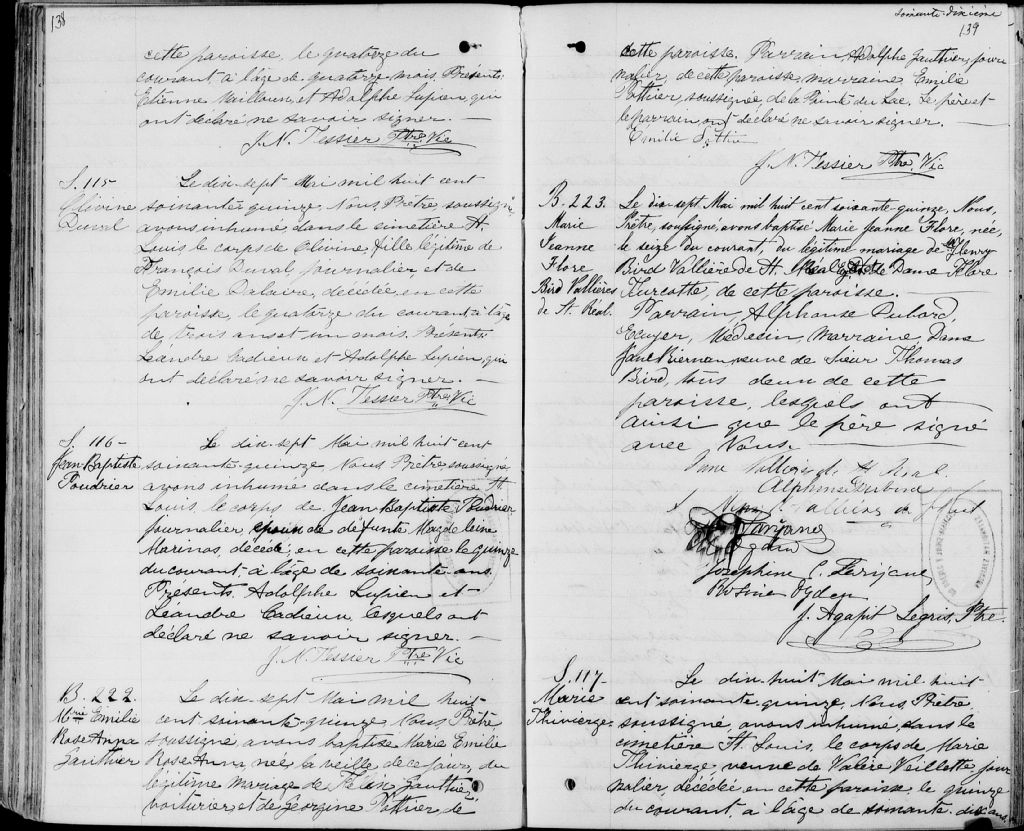 138
cette paroisse, le quatorze du
courant à l'âge de quatorze mois. Présents:
Etienne Mailloux, et Adolphe Lupien, qui
ont déclaré ne savoir signer. —
J. N. Tessier Ptre Vic
S. 115
Olivine
Duval
Le dix-sept Mai mil huit cent
soixante-quinze, Nous, Prêtre soussigné,
avons inhumé dans le cimetière St.
Louis, le corps de Olivine fille légitime de
François Duval, journalier, et de
Emilie Dalaire, décédée, en cette
paroisse, le quatorze du courant à l'âge
de trois ans et un mois. Présents:
Léandre Cadieux et Adolphe Lupien, qui
ont déclaré ne savoir signer. —
J. N. Tessier Ptre Vic
S. 116 -
Jean Baptiste
Poudrier
Le dix-sept Mai mil huit cent
soixante-quinze, Nous Prêtre soussigné
avons inhumé dans le cimetière St.
Louis, le corps de Jean Baptiste Poudrier
journalier, époux de défunte Magdeleine
Marinos, décédé, en cette paroisse le quinze
du courant à l'âge de soixante ans.
Présents, Adolphe Lupien et
Léandre Cadieux, lesquels ont
déclaré ne savoir signer. —
J. N. Tessier Ptre Vic
B. 222.
Mrie Emilie
Rose Anna
Gauthier
Le dix-sept Mai mil huit-
cent soixante-quinze, Nous Prêtre
soussigné, avons baptisé Marie Emilie
Rose Anna, née la veille de ce jour, du
légitime mariage de Gauthier
voiturier et de Georgine Pothier de
soixante-dixième
139
cette paroisse. Parrain, Adolphe Gauthier, jour
nalier, de cette paroisse, marraine Emilie
Pothier, soussignée de la Pointe du Lac. Le père et
le parrain ont déclaré ne savoir signer. —
Emilie Pothier
J. N. Tessier Ptre Vic
B. 223.
Marie
Jeanne
Flore
Bird Vallières
de St. Réal.
Le dix-sept Mai mil huit cent soixante-quinze, Nous,
Prêtre, soussigné, avons baptisé Marie Jeanne Flore, née,
le seize du courant, du légitime mariage de Henry
Bird Vallière de St. Réal Dame Flore
Turcotte, de cette paroisse. —
Parrain, Alphonse Dubord,
Ecuyer, Médecin, Marraine, Dame
Jane Biernan, veuve de Sieur Thomas
Bird, tous deux de cette
paroisse, lesquels ont
ainsi que le père signé
avec Nous. —
Jane Vallières de St Réal
Alphonse Dubord
Ogden
Josephine C.
Rosine Ogden
J. Agapit Legris, Ptre.
S. 117 -
Marie
Thivierge
Le dix-huit Mai mil huit-
cent soixante-quinze, Nous Prêtre
soussigné, avons inhumé, dans le
cimetière St. Louis, le corps de Marie
Thivierge, veuve de Valère Veillette, jour
nalier, décédée en cette paroisse, le quinze
du courant, à l'âge de soixante-dix ans.